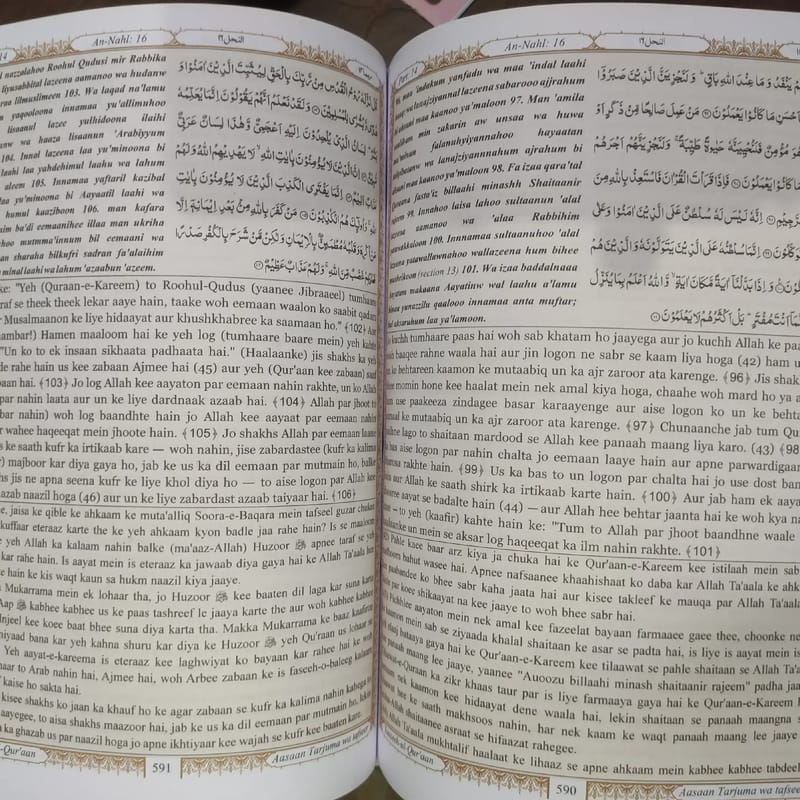 Part: 14
An-Nahl: 16
النحل ١٦
maa 'indakum yanfadu wa maa 'indal laahi
wa lanajziyannal lazeena sabarooo ajrahum
maa kaanoo ya'maloon 97. Man 'amila
min zakarin aw unsaa wa huwa
falanuhyiyannahoo hayaatan
wa lanajziyannahum ajrahum bi
maa kaanoo ya'maloon 98. Fa izaa qara'tal
fasta'iz billaahi minash Shaitaanir
99. Innahoo laisa lahoo sultaanun 'alal
aamanoo wa 'alaa Rabbihim
100. Innnamaa sultaanuhoo 'alal
yatawallawnahoo wallazeena hum bihee
(section 13) 101. Wa izaa baddalnaaa
makaana Aayatinw wal laahu a'lamu
yunazzilu qaalooo innamaa anta muftar;
aksaruhum laa ya'lamoon.
يَنْفَدُ وَمَا عِنْدَ اللّٰهِ بَاقٍ ؕ وَلَنَجْزِيَنَّ الَّذِيْنَ صَبَرُوْۤا
بِاَحْسَنِ مَا كَانُوْا يَعْمَلُوْنَ ۞ مَنْ عَمِلَ صَالِحًا مِّنْ ذَكَرٍ اَوْ
وَهُوَ مُؤْمِنٌ فَلَنُحْيِيَنَّهٗ حَيٰوةً طَيِّبَةً ۚ وَلَنَجْزِيَنَّهُمْ اَجْرَهُمْ
مَا كَانُوْا يَعْمَلُوْنَ ۞ فَاِذَا قَرَاْتَ الْقُرْاٰنَ فَاسْتَعِذْ بِاللّٰهِ مِنَ
الرَّجِيْمِ ۞ اِنَّهٗ لَيْسَ لَهٗ سُلْطٰنٌ عَلَى الَّذِيْنَ اٰمَنُوْا وَعَلٰى
يَتَوَكَّلُوْنَ ۞ اِنَّمَا سُلْطٰنُهٗ عَلَى الَّذِيْنَ يَتَوَلَّوْنَهٗ وَالَّذِيْنَ هُمْ
وَاِذَا بَدَّلْنَاۤ اٰيَةً مَّكَانَ اٰيَةٍ ۙ وَّاللّٰهُ اَعْلَمُ بِمَا يُنَزِّلُ
اِنَّمَاۤ اَنْتَ مُفْتَرٍ ؕ بَلْ اَكْثَرُهُمْ لَا يَعْلَمُوْنَ ۞
kuchh tumhaare paas hai woh sab khatam ho jaayega aur jo kuchh Allah ke paa
baaqee rahne waala hai aur jin logon ne sabr se kaam liya hoga (42) ham u
ke behtareen kaamon ke mutaabiq un ka ajr zaroor ata karenge. ﴾96﴿ Jis shak
momin hone kee haalat mein nek amal kiya hoga, chaahe woh mard ho ya a
use paakeeza zindagee basar karaayenge aur aise logon ko un ke behta
amal ke mutaabiq un ka ajr zaroor ata karenge. ﴾97﴿ Chunaanche jab tum Qu
lago to shaitaan mardood se Allah kee panaah maang liya karo. (43) ﴾98
aise logon par nahin chalta jo eemaan laaye hain aur apne parwardigaa
rakhte hain. ﴾99﴿ Us ka bas to un logon par chalta hai jo use dost ban
aur Allah ke saath shirk ka irtikaab karte hain. ﴾100﴿ Aur jab ham ek aaya
aayat se badalte hain (44) — aur Allah hee behtar jaanta hai ke woh kya na
– to yeh (kaafir) kahte hain ke: "Tum to Allah par jhoot baandhne waale
un mein se aksar log haqeeqat ka ilm nahin rakhte. ﴾101﴿
Pahle kaee baar arz kiya ja chuka hai ke Qur'aan-e-Kareem kee istilaah mein sab
mafhoom bahut wasee hai. Apnee nafsaanee khaahishaat ko daba kar Allah Ta'aala ke ahk
paabandee ko bhee sabr kaha jaata hai aur kisee takleef ke mauqa par Allah Ta'aala
par koee shikaayat na kee jaaye to woh bhee sabr hai.
Pichhlee aayaton mein nek amal kee fazeelat bayaan farmaaee gaee thee, choonke ne
mein sab se ziyaada khalal shaitaan ke asar se padta hai, is liye is aayat mein is
bataaya gaya hai ke Qur'aan-e-Kareem kee tilaawat se pahle shaitaan se Allah Ta'a
panaah maang lee jaaye, yaanee "Auoozu billaahi minash shaitaanir rajeem" padha jaa
ka zikr khaas taur par is liye farmaaya gaya hai ke Qur'aan-e-Kareem
nek kaamon kee hidaayat dene waala hai, lekin shaitaan se panaah maangna
ke saath makhsoos nahin, har nek kaam ke waqt panaah maang lee jaaye
shaitaanee asraat se hifaazat rahegee.
Allah Ta'aala mukhtalif haalaat ke lihaaz se apne ahkaam mein kabhee kabhee tabdeel
590
Aasaan Tarjuma wa tafsee
14
An-Nahl: 16
النحل ١٦
nazzalahoo Roohul Qudusi mir Rabbika
liyusabbital lazeena aamanoo wa hudanw
lilmuslimeen 103. Wa laqad na'lamu
yaqooloona innamaa yu'allimuhoo
lisaanul lazee yulhidoona ilaihi
wa haaza lisaanun 'Arabiyyum
104. Innal lazeena laa yu'minoona bi
laahi laa yahdehimul laahu wa lahum
aleem 105. Innamaa yaftaril kazibal
laa yu'minoona bi Aayaatil laahi wa
humul kaaziboon 106. man kafara
min ba'di eemaanihee illaa man ukriha
mutmma'innum bil eemaani wa
man sharaha bilkufri sadran fa'alaihim
minal laahi wa lahum 'azaabun 'azeem.
قُلْ نَزَّلَهٗ رُوْحُ الْقُدُسِ مِنْ رَّبِّكَ بِالْحَقِّ لِيُثَبِّتَ الَّذِيْنَ اٰمَنُوْا وَ
هُدًى وَّبُشْرٰى لِلْمُسْلِمِيْنَ ۞ وَلَقَدْ نَعْلَمُ اَنَّهُمْ يَقُوْلُوْنَ اِنَّمَا يُعَلِّمُهٗ
بَشَرٌ ؕ لِسَانُ الَّذِيْ يُلْحِدُوْنَ اِلَيْهِ اَعْجَمِيٌّ وَّهٰذَا لِسَانٌ عَرَبِيٌّ
مُّبِيْنٌ ۞ اِنَّ الَّذِيْنَ لَا يُؤْمِنُوْنَ بِاٰيٰتِ اللّٰهِ ۙ لَا يَهْدِيْهِمُ اللّٰهُ وَلَهُمْ
عَذَابٌ اَلِيْمٌ ۞ اِنَّمَا يَفْتَرِي الْكَذِبَ الَّذِيْنَ لَا يُؤْمِنُوْنَ بِاٰيٰتِ
اللّٰهِ ۚ وَاُولٰٓئِكَ هُمُ الْكٰذِبُوْنَ ۞ مَنْ كَفَرَ بِاللّٰهِ مِنْۢ بَعْدِ اِيْمَانِهٖۤ اِلَّا
مَنْ اُكْرِهَ وَقَلْبُهٗ مُطْمَئِنٌّۢ بِالْاِيْمَانِ وَلٰكِنْ مَّنْ شَرَحَ بِالْكُفْرِ صَدْرًا
فَعَلَيْهِمْ غَضَبٌ مِّنَ اللّٰهِ ۚ وَلَهُمْ عَذَابٌ عَظِيْمٌ ۞
ke: "Yeh (Quraan-e-Kareem) to Roohul-Qudus (yaanee Jibraaeel) tumhaare
taraf se theek theek lekar aaye hain, taake woh eemaan waalon ko saabit qadam
Musalmaanon ke liye hidaayat aur khushkhabree ka saamaan ho." ﴾102﴿ Aur
Hamen maaloom hai ke yeh log (tumhaare baare mein) yeh kahte
"Un ko to ek insaan sikhaata padhaata hai." (Haalaanke) jis shakhs ka yeh
de rahe hain us kee zabaan Ajmee hai (45) aur yeh (Qur'aan kee zabaan) saaf
zabaan hai. ﴾103﴿ Jo log Allah kee aayaton par eemaan nahin rakhte, un ko Allah
par nahin laata aur un ke liye dardnaak azaab hai. ﴾104﴿ Allah par jhoot to
nahin) woh log baandhte hain jo Allah kee aayaat par eemaan nahin
wahee haqeeqat mein jhoote hain. ﴾105﴿ Jo shakhs Allah par eemaan laane
ke saath kufr ka irtikaab kare — woh nahin, jise zabardastee (kufr ka kalima
majboor kar diya gaya ho, jab ke us ka dil eemaan par mutmain ho, balke
jis ne apna seena kufr ke liye khol diya ho — to aise logon par Allah kee
azab naazil hoga (46) aur un ke liye zabardast azaab taiyaar hai. ﴾106﴿
jaisa ke qible ke ahkaam ke muta'alliq Soora-e-Baqara mein tafseel guzar chukee
kuffaar eteraaz karte the ke yeh ahkaam kyon badle jaa rahe hain? Is se maaloom
yeh Allah ka kalaam nahin balke (ma'aaz-Allah) Huzoor ﷺ apnee taraf se yeh
kar rahe hain. Is aayat mein is eteraaz ka jawaab diya gaya hai ke Allah Ta'aala hee
hain ke kis waqt kaun sa hukm naazil kiya jaaye.
Makka Mukarrama mein ek lohaar tha, jo Huzoor ﷺ kee baaten dil laga kar suna karta
Aap ﷺ kabhee kabhee us ke paas tashreef le jaaya karte the aur woh kabhee kabhee
Injeel kee koee baat bhee suna diya karta tha. Makka Mukarrama ke baaz kaafiron
buniyaad bana kar yeh kahna shuru kar diya ke Huzoor ﷺ yeh Qu'raan us lohaar se
Yeh aayat-e-kareema is eteraaz kee laghwiyat ko bayaan kar rahee hai ke woh
lohaar to Arab nahin hai, Ajmee hai, woh Arbee zabaan ke is faseeh-o-baleeg kalaam
kaise ho sakta hai.
kisee shakhs ko jaan ka khauf ho ke agar zabaan se kufr ka kalima nahin kahega to
jaayegee, to aisa shakhs maazoor hai, jab ke us ka dil eemaan par mutmain ho, lekin
ka ghazab us par naazil hoga jo apne ikhtiyaar kee wajah se kufr kee baaten kare.
591
Aasaan Tarjuma wa tafseer